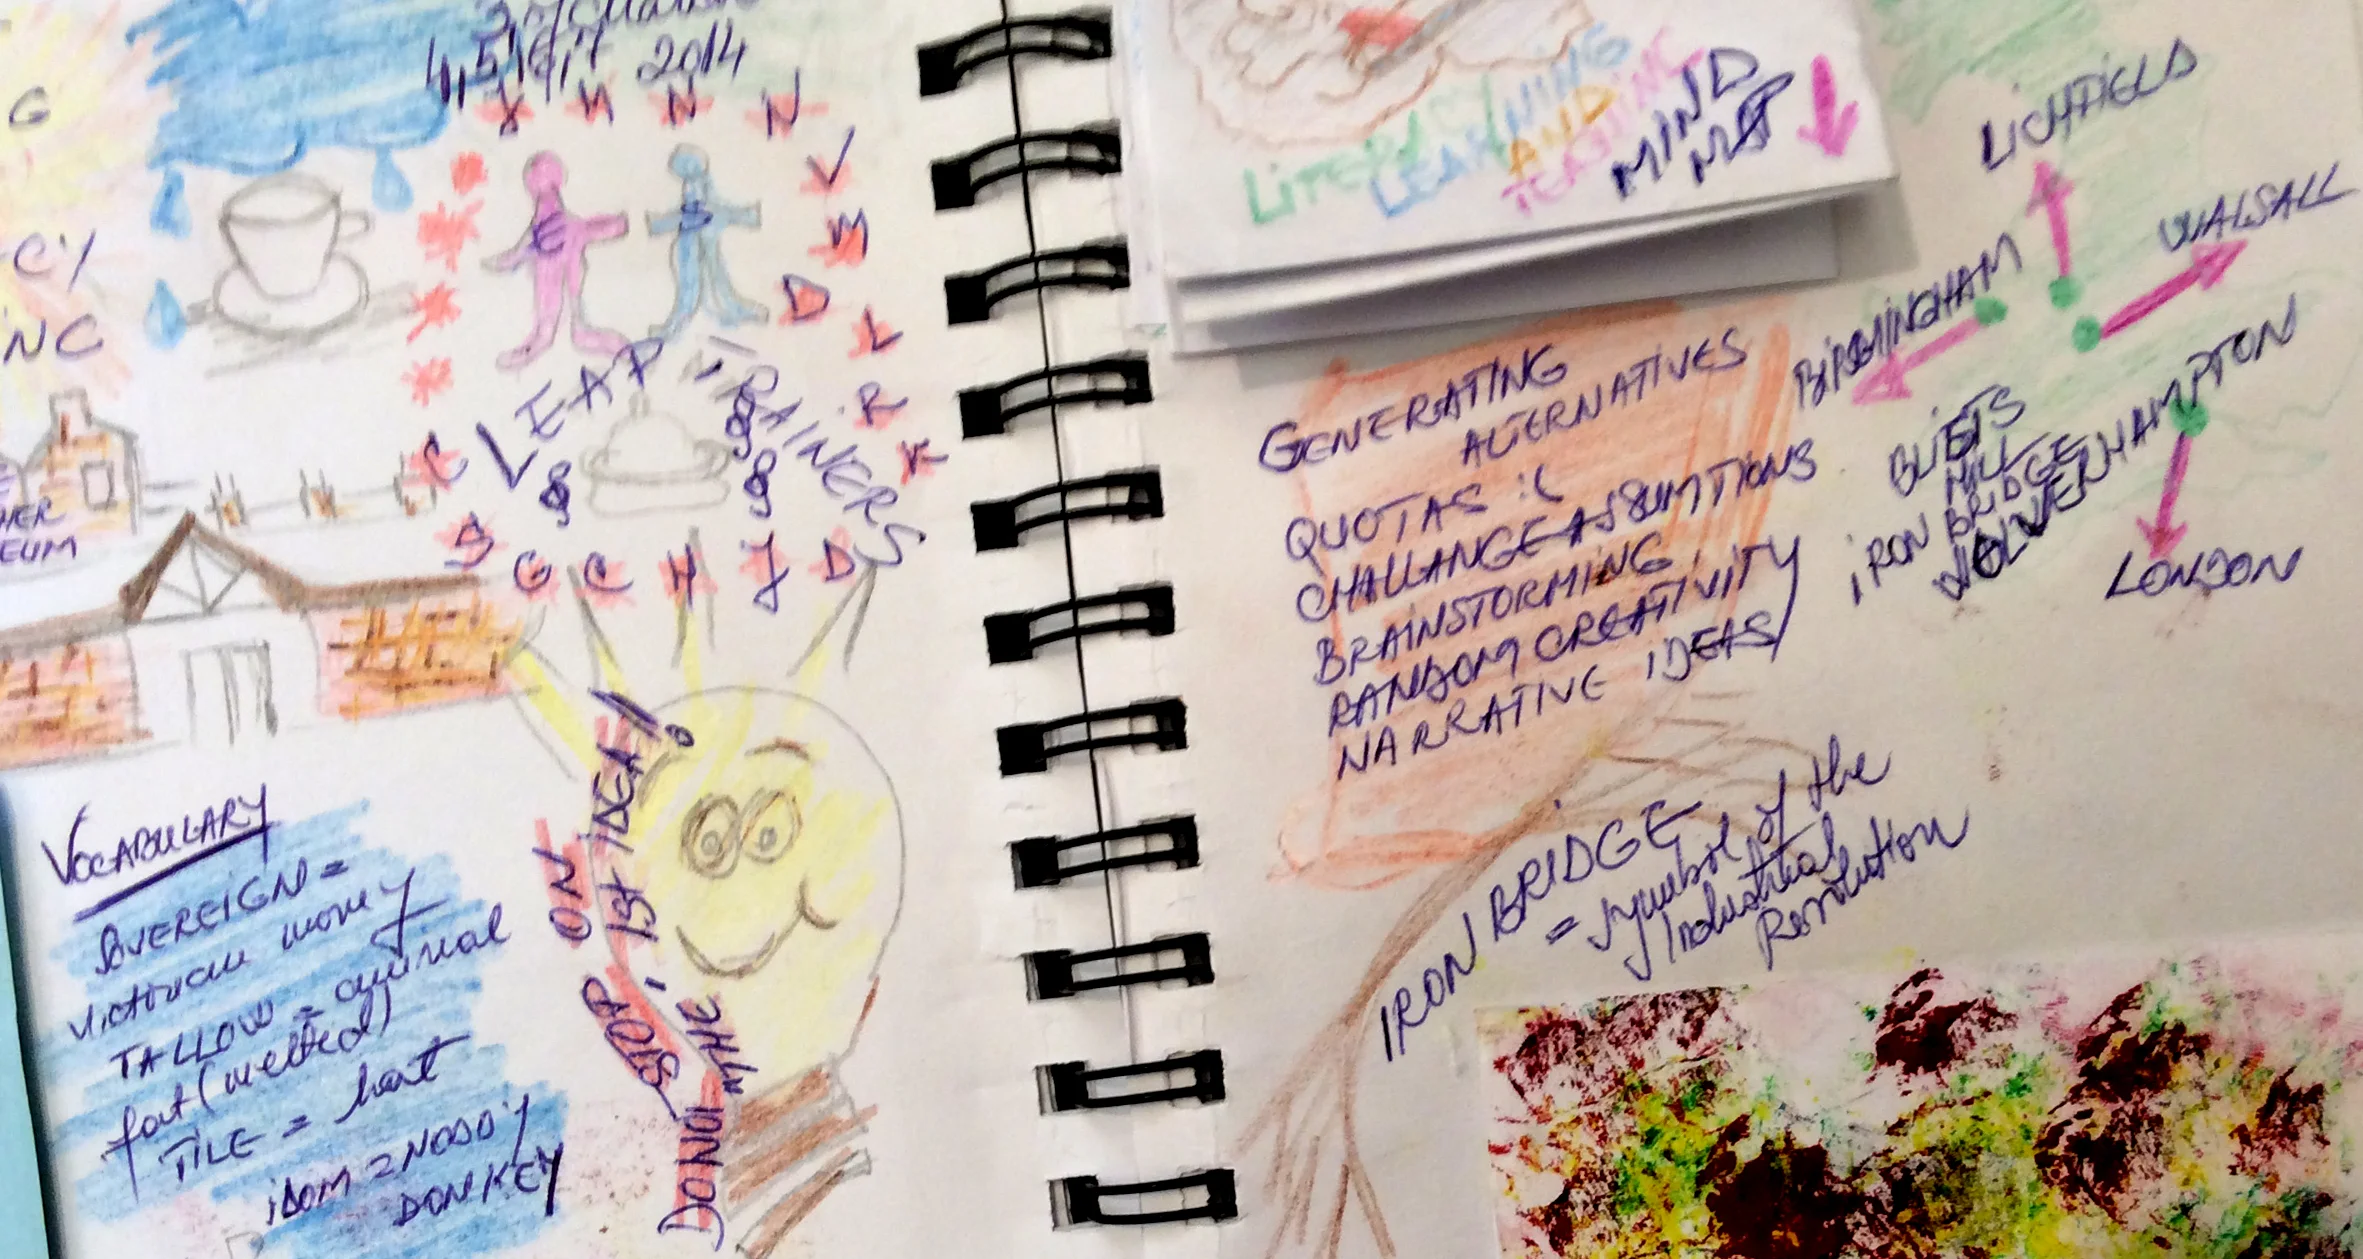 4, 5, 6, 7 2014
G
CY
NC
HER
EUM
X
N
N
N
V
M
D
L
R
K
E
S
LEAP
TRAINERS
C
S
G
C
H
J
D
VOCABULARY
SOVEREIGN =
victorian money
TALLOW = animal
fat (melted)
TILE = hat
iDOM = NODDY
DONKEY
DON'T STOP ON
THE 1st IDEA!
LITERACY
LEARNING
AND
TEACHING
MIND
MAP
GENERATING
ALTERNATIVES
QUOTAS :(
CHALLANGE ASSUMTIONS
BRAINSTORMING
RANDOM CREATIVITY
NARRATIVE IDEAS
LICHFIELD
WALSALL
BIRMINGHAM
BLISTS
HILL
iRON BRIDGE
WOLVERHAMPTON
LONDON
IRON BRIDGE
= symbol of the
Industrial
Revolution